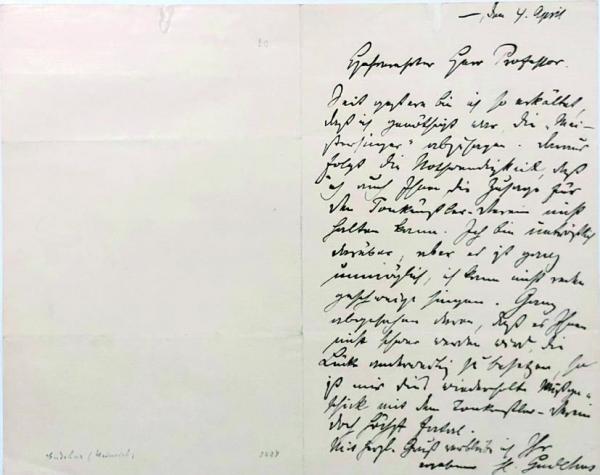 —, den 4. April
Verehrtester Herr Professor.
Seit gestern bin ich so erkältet,
daß ich genöthigt war, die „Mei-
stersinger" abzusagen. Daraus
folgt die Nothwendigkeit, daß
ich auch Ihnen die Zusage für
den Tonkünstler-Verein nicht
halten kann. Ich bin untröstlich
darüber, aber es ist ganz
unmöglich, ich kann nicht reden
geschweige singen. Ganz
abgesehen davon, daß es Ihnen
nicht schwer werden wird, die
Lücke anderweitig zu besetzen, so
ist mir dies wiederholte Mißge-
schick mit dem Tonkünstler-Verein
doch höchst fatal.
Mit herzl. Gruß verbleibe ich Ihr
ergebener H. Gudehus
Gudehus (Heinrich)